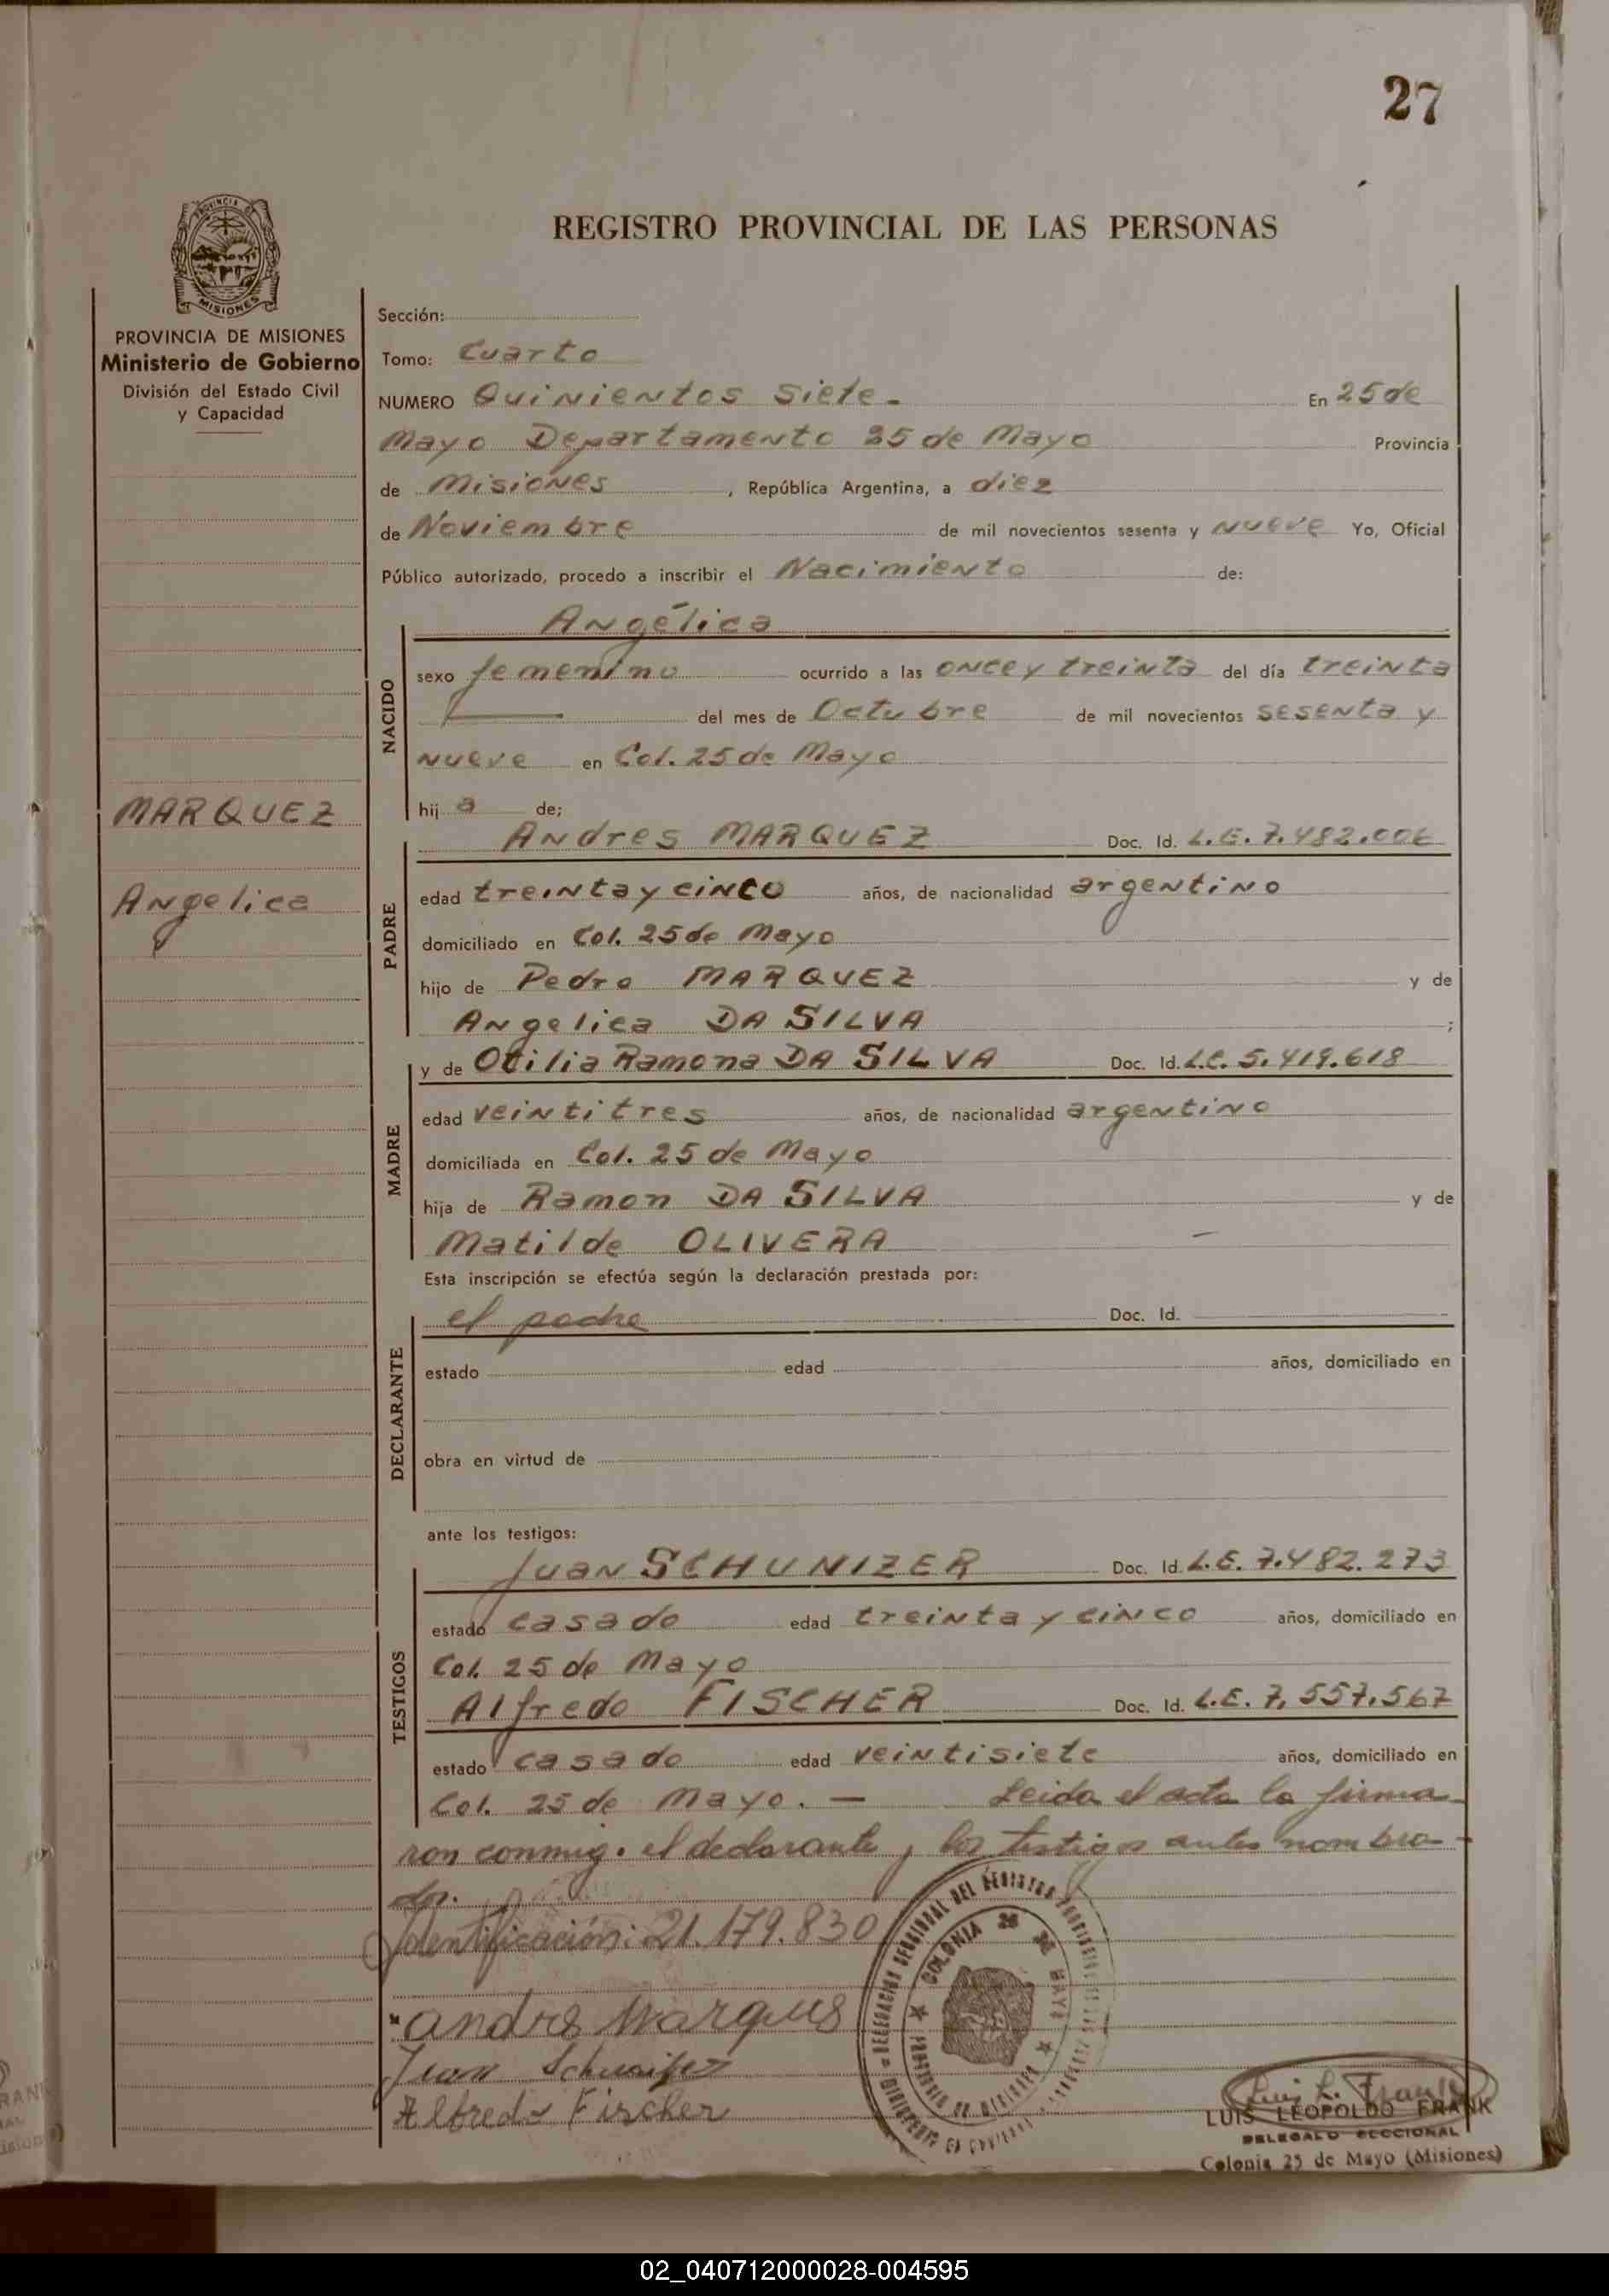 27
REGISTRO PROVINCIAL DE LAS PERSONAS
PROVINCIA DE
MISIONES
PROVINCIA DE MISIONES
Ministerio de Gobierno
División del Estado Civil
y Capacidad
MARQUEZ
Angelica
Sección:
Tomo: Cuarto
NUMERO Quinientos siete.- En 25 de
Mayo Departamento 25 de Mayo Provincia
de Misiones, República Argentina, a diez
de Noviembre de mil novecientos sesenta y nueve Yo, Oficial
Público autorizado, procedo a inscribir el Nacimiento de:
NACIDO
Angélica
sexo femenino ocurrido a las once y treinta del día treinta
del mes de Octubre de mil novecientos sesenta y
nueve en Col. 25 de Mayo
hija de;
PADRE
Andres MARQUEZ Doc. Id. L.E. 7.482.006
edad treinta y cinco años, de nacionalidad argentino
domiciliado en Col. 25 de Mayo
hijo de Pedro MARQUEZ y de
Angelica DA SILVA ;
MADRE
y de Otilia Ramona DA SILVA Doc. Id. L.C. 5.419.618
edad veintitres años, de nacionalidad argentino
domiciliada en Col. 25 de Mayo
hija de Ramon DA SILVA y de
Matilde OLIVERA
Esta inscripción se efectúa según la declaración prestada por:
DECLARANTE
el padre Doc. Id.
estado edad años, domiciliado en
obra en virtud de
ante los testigos:
TESTIGOS
Juan SCHUNIZER Doc. Id. L.E. 7.482.273
estado casado edad treinta y cinco años, domiciliado en
Col. 25 de Mayo
Alfredo FISCHER Doc. Id. L.E. 7.557.567
estado casado edad veintisiete años, domiciliado en
Col. 25 de Mayo. — Leida el acta la firma-
ron conmigo el declarante y los testigos antes nombra-
dos.
Identificación: 21.179.830
COLONIA 25 DE MAYO
Andres Marques
Juan
Alfredo Fischer
Luis L. Frank
LUIS LEOPOLDO FRANK
DELEGADO SECCIONAL
Colonia 25 de Mayo (Misiones)
02_040712000028-004595